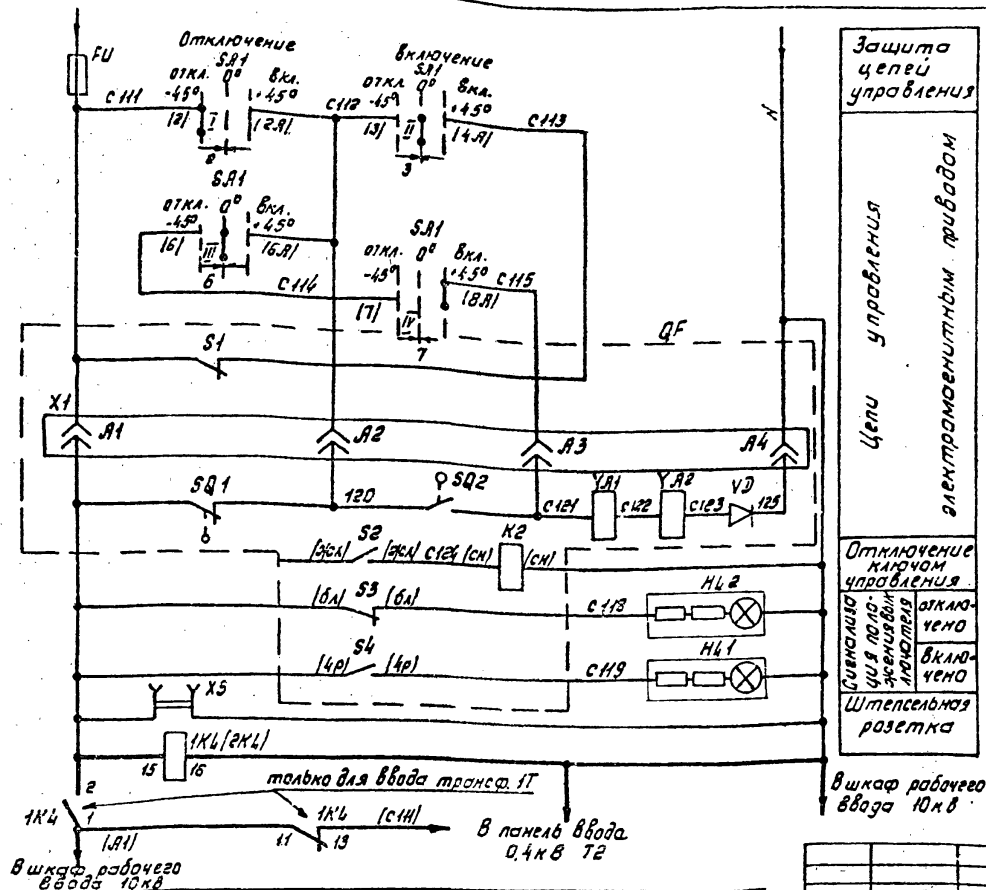 FU
Отключение
SA1
откл. 0° Вкл.
-45° +45°
C111
(2) I (2Я)
2
C112
Включение
SA1
откл. 0° Вкл.
-45° +45°
(3) II (4Я)
3
C113
SA1
откл. 0° Вкл.
-45° +45°
(6) III (6Я)
6
C114
SA1
откл. 0° Вкл.
-45° +45°
(7) IV (8Я)
7
C115
N
QF
S1
X1
A1
A2
A3
A4
SQ1
120
SQ2
C121
YA1
C122
YA2
C123
VD
125
S2
(жл) (жл) C124 (сн)
K2
(сн)
(бл) S3 (бл)
C118
HL2
S4
(чр) (чр)
C119
HL1
X5
1К4(2К4)
15 16
только для ввода трансф. 1Т
2
1К4
1
(A1)
1К4
11 13
(С1Н)
В шкаф рабочего
ввода 10кв
В панель ввода
0,4кв Т2
В шкаф рабочего
ввода 10кв
Защита
цепей
управления
Цепи управления
электромагнитным приводом
Отключение
ключом
управления
Сигнализа
ция поло-
жения вык
лючателя
отклю-
чено
включ-
чено
Штепсельная
розетка